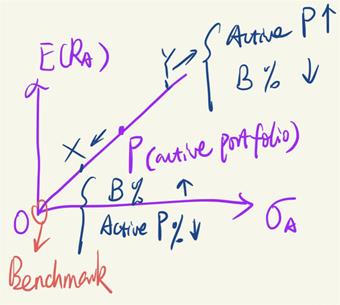 E(RA)
Y
Active P↑
B% ↓
X
P (active portfolio)
B% ↑
Active P%↓
O
σA
Benchmark